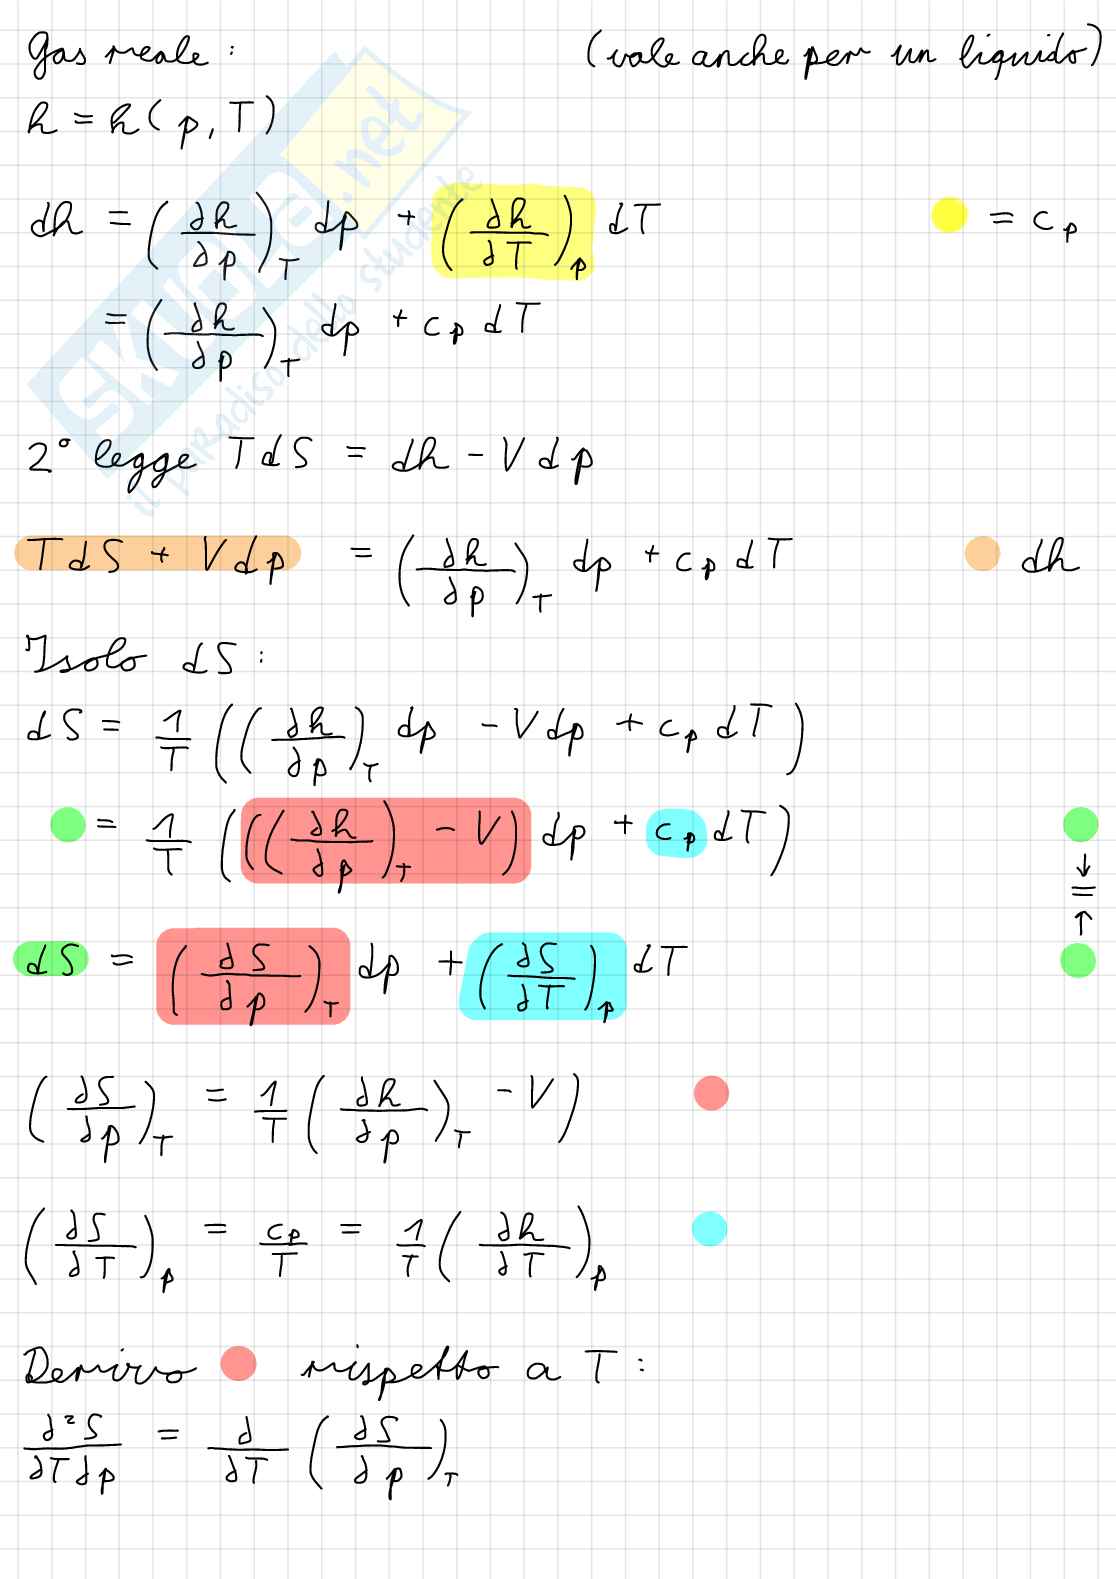 Gas reale : (vale anche per un liquido)
h = h(p, T)
dh = (∂h/∂p)_T dp + (∂h/∂T)_p dT = c_p
= (∂h/∂p)_T dp + c_p dT
2° legge TdS = dh - Vdp
TdS + Vdp = (∂h/∂p)_T dp + c_p dT dh
Isolo dS :
dS = 1/T ((∂h/∂p)_T dp - Vdp + c_p dT)
= 1/T (((∂h/∂p)_T - V) dp + c_p dT) ↓ = ↑
dS = (∂S/∂p)_T dp + (∂S/∂T)_p dT
(∂S/∂p)_T = 1/T (∂h/∂p)_T - V)
(∂S/∂T)_p = c_p/T = 1/T (∂h/∂T)_p
Derivo rispetto a T :
∂²S/∂T∂p = ∂/∂T (∂S/∂p)_T
SKUOLA.net
il paradiso dello studente